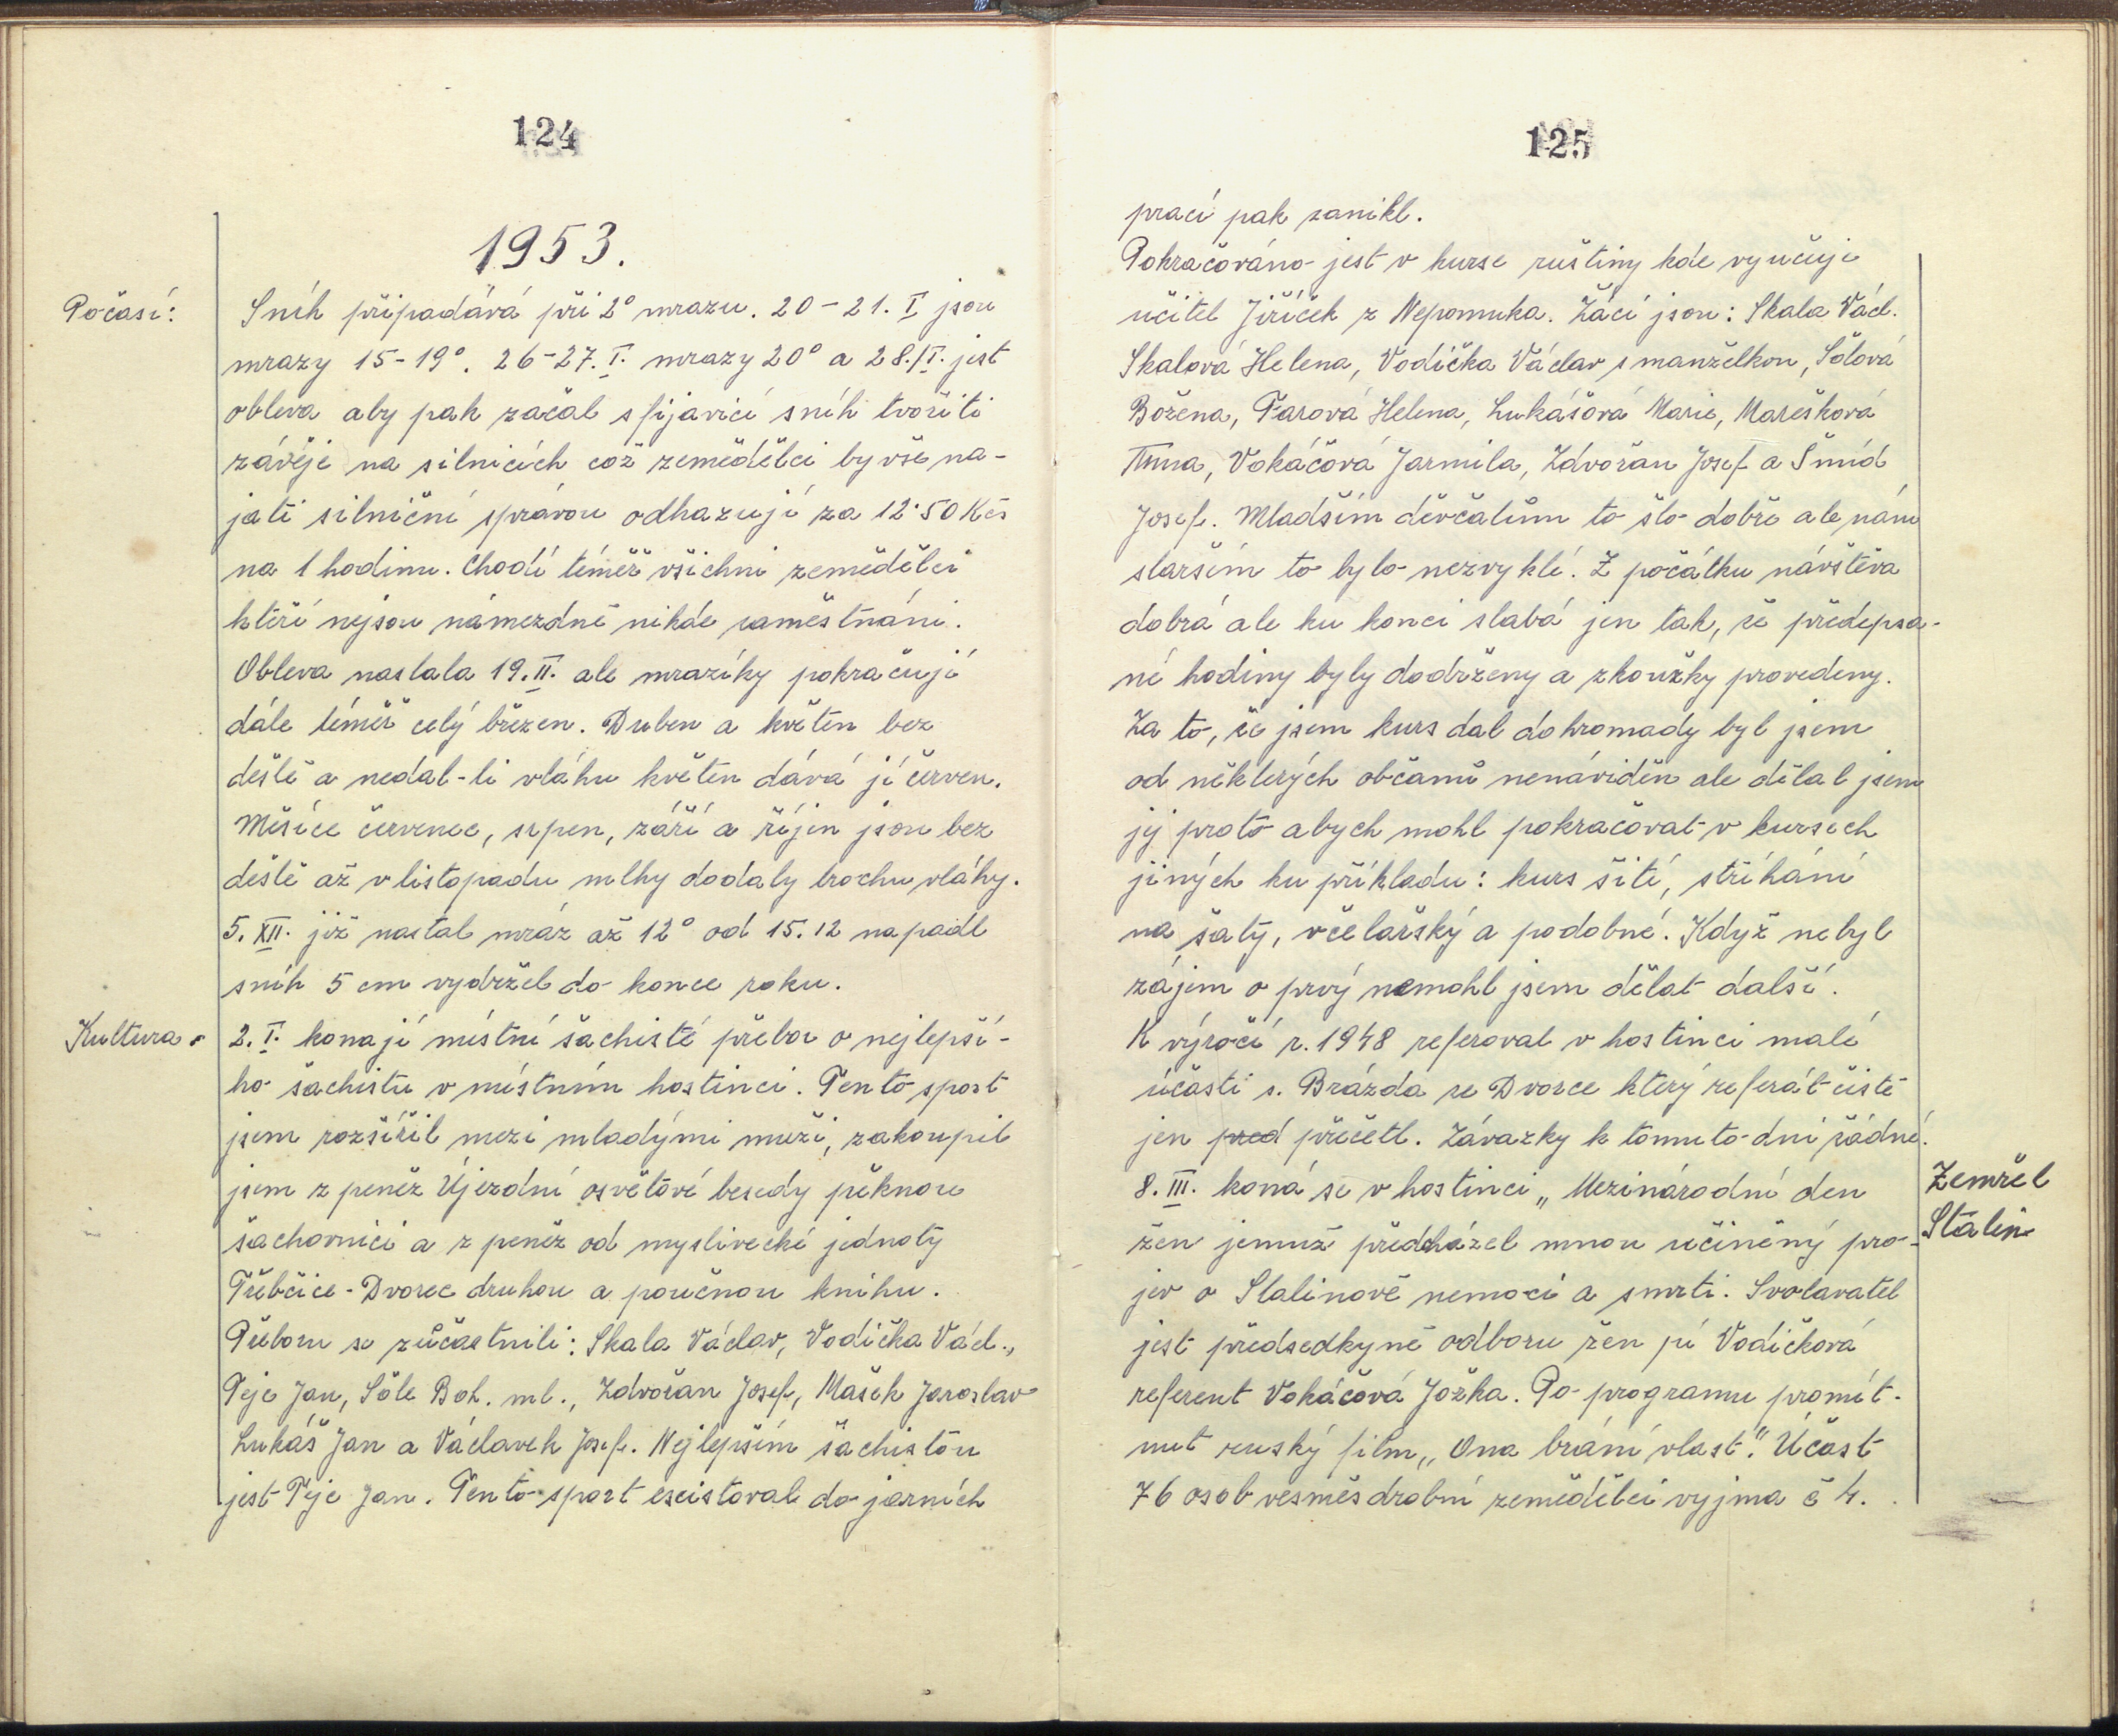 124
1953.
Počasí:
Sníh připadává při 2° mrazu. 20-21. I jsou
mrazy 15-19°. 26-27. I. mrazy 20° a 28./I. jest
obleva aby pak začal sfijavicí sníh tvořiti
závěje na silnicích což zemědělci byvše na-
jati silniční správou odhazují za 12·50 Kčs
na 1 hodinu. Chodí téměř všichni zemědělci
kteří nejsou námezdně nikde zaměstnáni.
Obleva nastala 19. II. ale mrazíky pokračují
dále téměř celý březen. Duben a květen bez
deště a nedal-li vláhu květen dává jí červen.
Měsíce červenec, srpen, září a říjen jsou bez
deště až v listopadu mlhy dodaly trochu vláhy.
5. XII. již nastal mráz až 12° od 15. 12 napadl
sníh 5 cm vydržel do konce roku.
Kultura.
2. I. konají místní šachisté přebor o nejlepší-
ho šachistu v místním hostinci. Tento sport
jsem rozšířil mezi mladými muži, zakoupil
jsem z peněz Újezdní osvětové besedy pěknou
šachovnici a z peněz od myslivecké jednoty
Třebčice-Dvorec druhou a poučnou knihu.
Přeboru se zúčastnili: Skala Václav, Vodička Václ.,
Peje Jan, Šole Boh. ml., Zdvořan Josef, Mašek Jaroslav
Lukáš Jan a Václavek Josef. Nejlepším šachistou
jest Peje Jan. Tento sport exeistoval do jarních
125
prací pak zanikl.
Pokračováno jest v kurse ruštiny kde vyučuje
učitel Jiříček z Nepomuka. Žáci jsou: Skala Václ.
Skalová Helena, Vodička Václav s manželkou, Šolová
Božena, Farová Helena, Lukášová Marie, Marešková
Anna, Vokáčová Jarmila, Zdvořan Josef a Šmíd
Josef. Mladším děvčatům to šlo dobře ale nám
starším to bylo nezvyklé. Z počátku návštěva
dobrá ale ku konci slabá jen tak, že předepsa-
né hodiny byly dodrženy a zkoužky provedeny.
Za to, že jsem kurs dal dohromady byl jsem
od některých občanů nenáviděn ale dělal jsem
jej proto abych mohl pokračovat v kursech
jiných ku příkladu: kurs šití, stříhání
na šaty, včelařský a podobné. Když nebyl
zájem o prvý nemohl jsem dělat další.
K výročí r. 1948 referoval v hostinci malé
účasti s. Brázda ze Dvorce který referát čistě
jen pred přečetl. Závazky k tomuto dni žádné.
8. III. koná se v hostinci „Mezinárodní den
žen jemuž předcházel mnou učiněný pro-
Zemřel
Stalin
jev o Stalinově nemoci a smrti. Svolavatel
jest předsedkyně odboru žen pí Vodičková
referent Vokáčová Jožka. Po programu promít-
nut ruský film „Ona brání vlast". Účast
76 osob vesměs drobní zemědělci vyjma č 4.